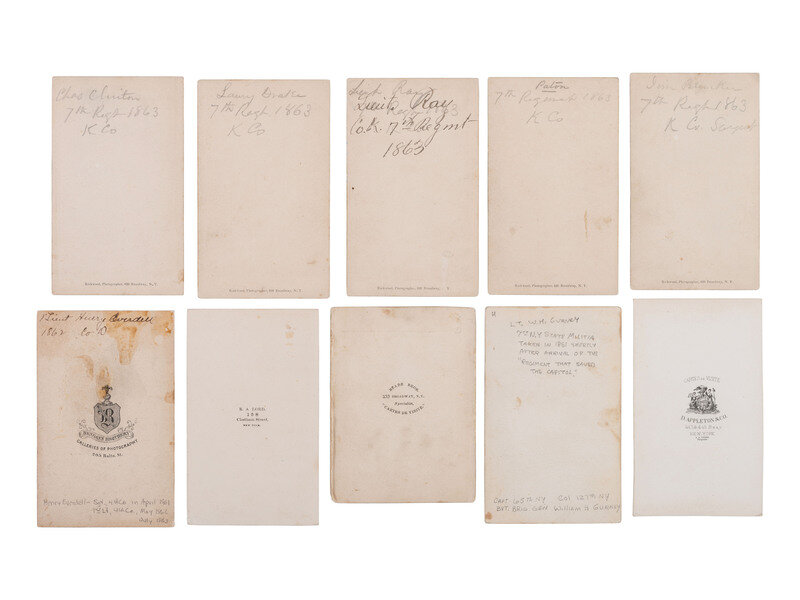 Chas Clinton
7th Regt 1863
K Co
Rockwood, Photographer, 839 Broadway, N.Y.
Drake
7th Regt 1863
K Co
Rockwood, Photographer, 839 Broadway, N.Y.
Ray
Lieut. Ray
Co. K. 7th Regmt
1863
Rockwood, Photographer, 839 Broadway,
Paton
7th Regiment 1863
K Co
Rockwood, Photographer, 839 Broadway, N.Y.
7th Regt 1863
K Co.
Rockwood, Photographer, 839 Broadway, N.Y.
Everdell
1862 Co. D
B
GALLERIES OF PHOTOGRAPHY
Henry Everdell - Sgt, 4th Co. in April 1861
4th Co, May 1861
July 1862
R. A LORD.
158
Chatham Street,
NEW YORK.
MEADE BROS.
233 BROADWAY, N.Y.
Specialité,
"CARTES DE VISITE."
LT. W.H. GURNEY
7TH N.Y STATE MILITIA
TAKEN IN 1861 SHORTLY
AFTER ARRIVAL OF THE
"REGIMENT THAT SAVED
THE CAPITOL."
CAPT 65TH NY COL 127TH NY
BVT. BRIG. GEN WILLIAM H GURNEY
CARTES DE VISITE
D. APPLETON & CO.
443 & 445 B'way
NEW YORK.